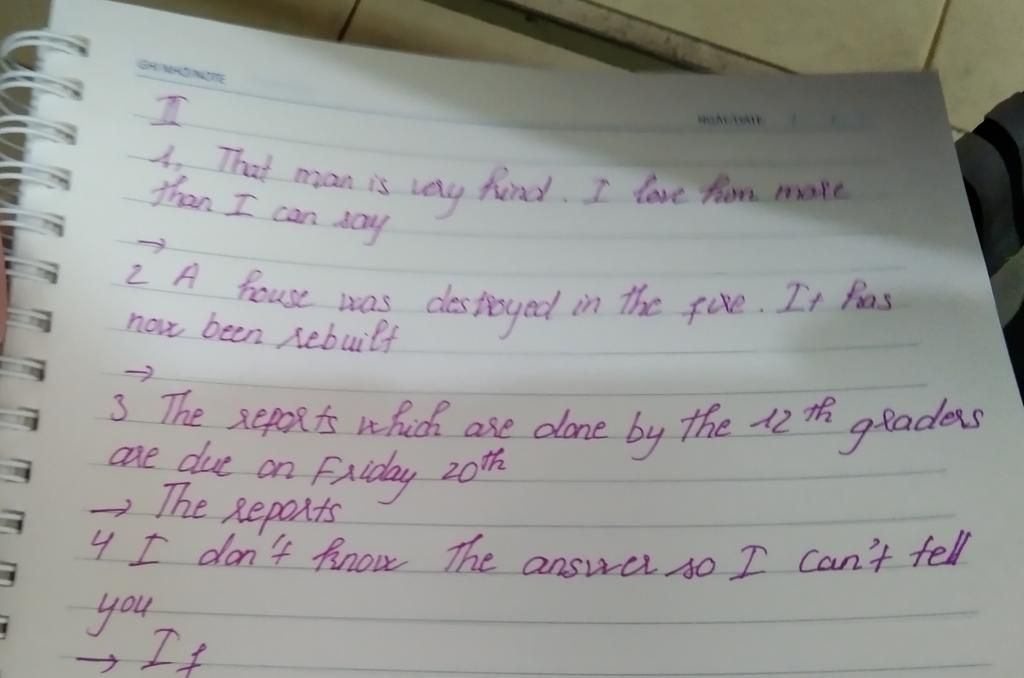 GHI NHỚ/NOTE
NGÀY/DATE / /
II
1, That man is very kind. I love him more
than I can say
→
2 A house was destroyed in the fire. It has
now been rebuilt
→
3 The reports which are done by the 12th graders
are due on Friday 20th
→ The reports
4 I don't know the answer so I can't tell
you
→ If